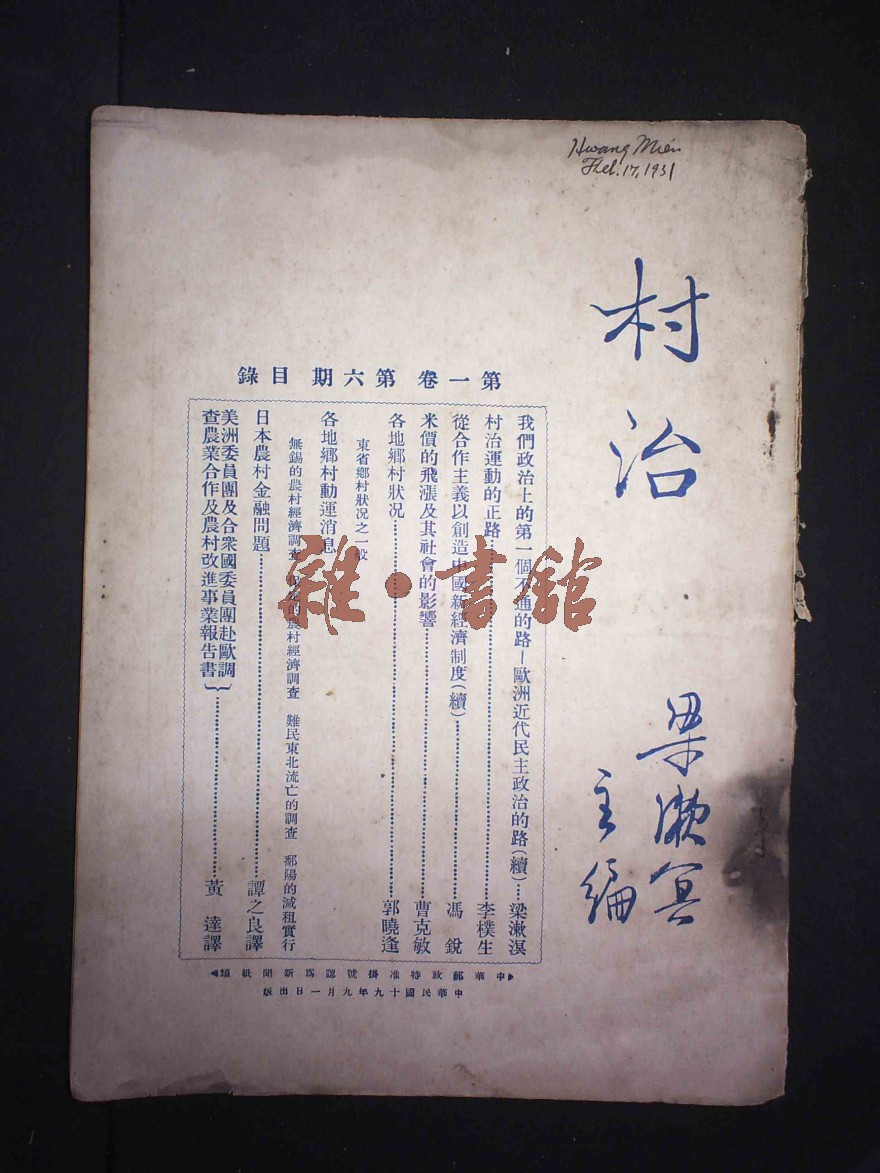 Hwang Mien
Feb. 17, 1931
村治
梁漱冥
主编
第一卷 第六期 目錄
我們政治上的第一個不通的路—歐洲近代民主政治的路(續)…梁漱溟
村治運動的正路……李樸生
從合作主義以創造中國新經濟制度(續)……馮 銳
米價的飛漲及其社會的影響……曹克敏
各地鄉村狀况……郭曉逢
東省鄉村狀况之一般
各地鄉村動運消息
無錫的農村經濟調查 的農村經濟調查 難民東北流亡的調查 鄱陽的减租實行
日本農村金融問題……譚之良譯
美洲委員團及合衆國委員團赴歐調
查農業合作及農村改進事業報告書}……黃 達譯
中華郵政特准掛號認爲新聞紙類
中華民國十九年九月一日出版
雜·書館